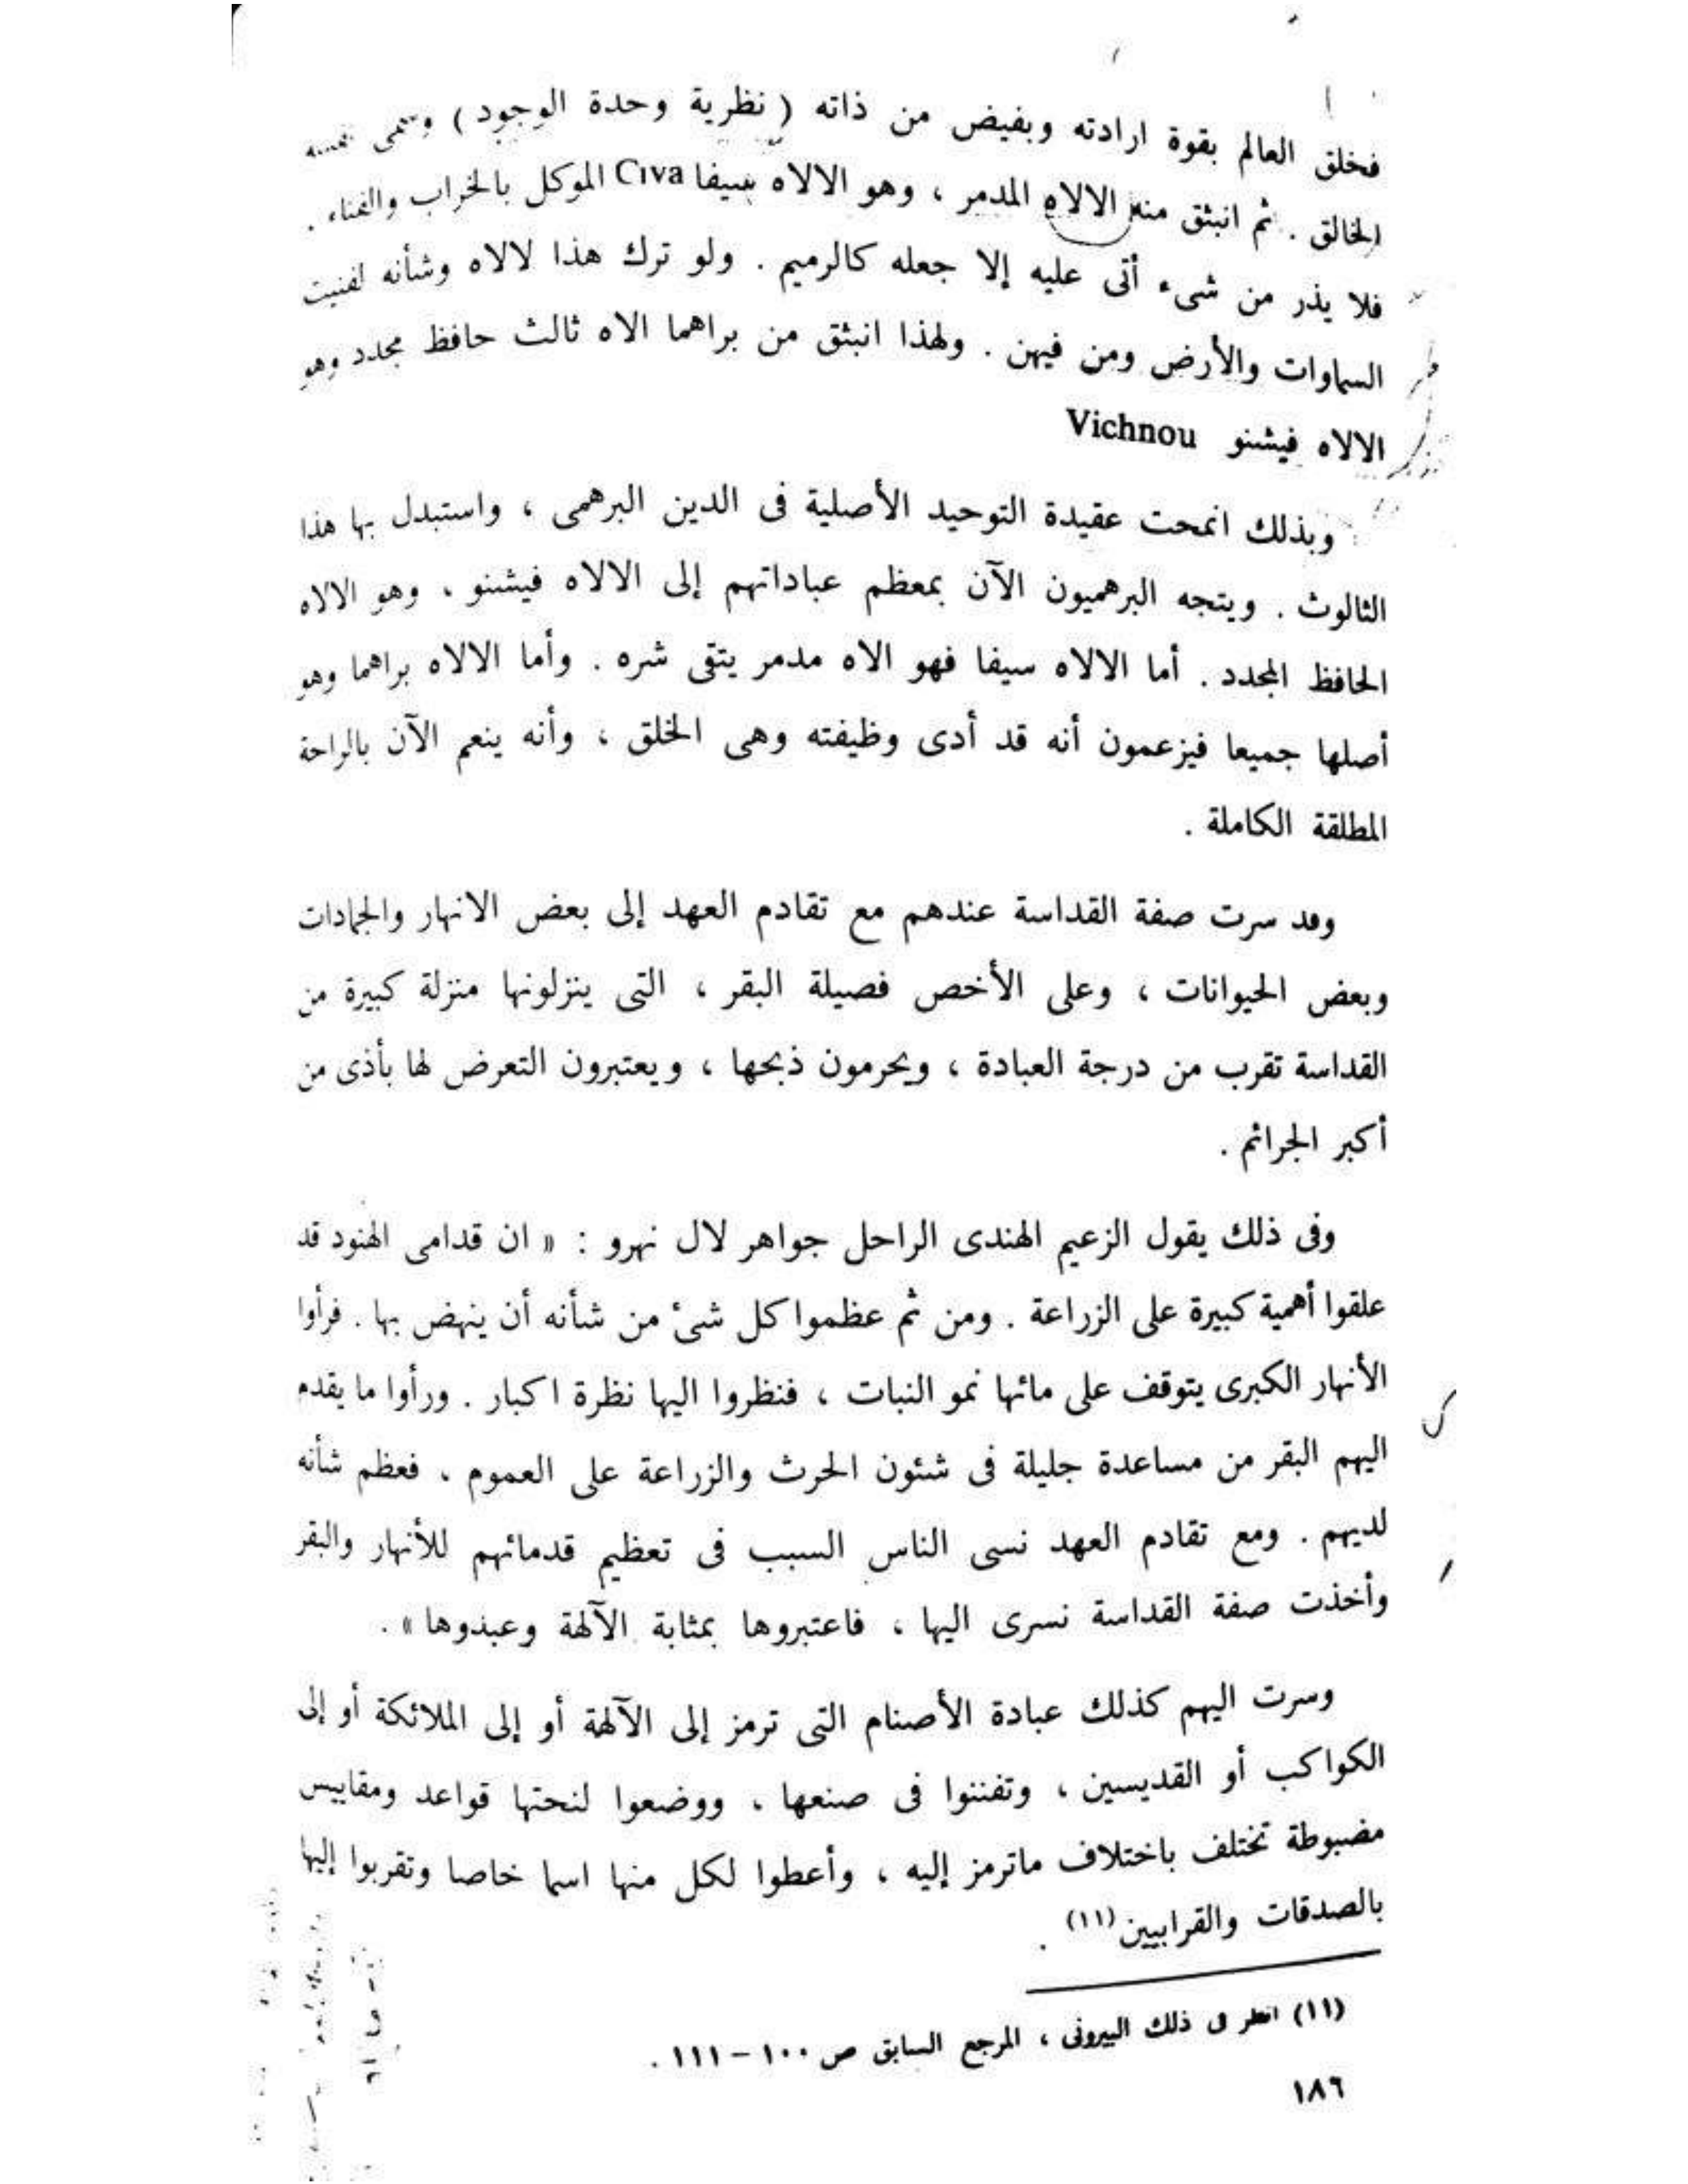 فخلق العالم بقوة ارادته وبفيض من ذاته ( نظرية وحدة الوجود ) وسمى نفسه
الخالق . ثم انبثق منه الالاه المدمر ، وهو الالاه سيفا Civa الموكل بالخراب والفناء .
فلا يذر من شىء أتى عليه إلا جعله كالرميم . ولو ترك هذا لالاه وشأنه لفنيت
السماوات والأرض ومن فيهن . ولهذا انبثق من براهما الاه ثالث حافظ مجدد وهو
الالاه فيشنو Vichnou
وبذلك انمحت عقيدة التوحيد الأصلية فى الدين البرهمى ، واستبدل بها هذا
الثالوث . ويتجه البرهميون الآن بمعظم عباداتهم إلى الالاه فيشنو ، وهو الالاه
الحافظ المجدد . أما الالاه سيفا فهو الاه مدمر يتقى شره . وأما الالاه براهما وهو
أصلها جميعا فيزعمون أنه قد أدى وظيفته وهى الخلق ، وأنه ينعم الآن بالراحة
المطلقة الكاملة .
وقد سرت صفة القداسة عندهم مع تقادم العهد إلى بعض الانهار والجمادات
وبعض الحيوانات ، وعلى الأخص فصيلة البقر ، التى ينزلونها منزلة كبيرة من
القداسة تقرب من درجة العبادة ، ويحرمون ذبحها ، ويعتبرون التعرض لها بأذى من
أكبر الجرائم .
وفى ذلك يقول الزعيم الهندى الراحل جواهر لال نهرو : « ان قدامى الهنود قد
علقوا أهمية كبيرة على الزراعة . ومن ثم عظموا كل شىْ من شأنه أن ينهض بها . فرأوا
الأنهار الكبرى يتوقف على مائها نمو النبات ، فنظروا اليها نظرة اكبار . ورأوا ما يقدمه
اليهم البقر من مساعدة جليلة فى شئون الحرث والزراعة على العموم ، فعظم شأنه
لديهم . ومع تقادم العهد نسى الناس السبب فى تعظيم قدمائهم للأنهار والبقر
وأخذت صفة القداسة تسرى اليها ، فاعتبروها بمثابة الآلهة وعبدوها » .
وسرت اليهم كذلك عبادة الأصنام التى ترمز إلى الآلهة أو إلى الملائكة أو إلى
الكواكب أو القديسين ، وتفننوا فى صنعها ، ووضعوا لنحتها قواعد ومقاييس
مضبوطة تختلف باختلاف ماترمز إليه ، وأعطوا لكل منها اسما خاصا وتقربوا إليها
بالصدقات والقرابيين (١١) .
(١١) انظر فى ذلك البيرونى ، المرجع السابق ص ١٠٠ – ١١١ .
١٨٦